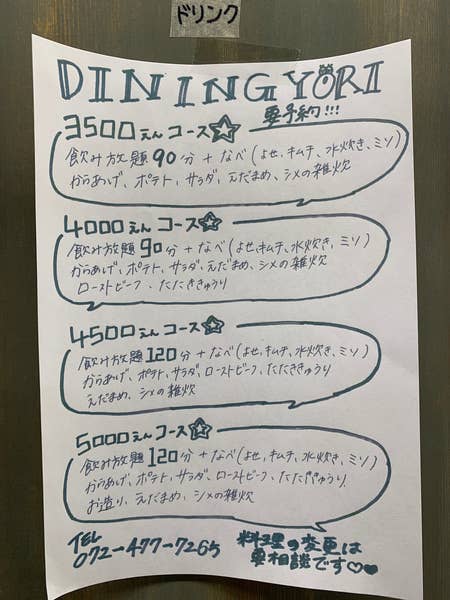 ドリンク
DINING YORI
要予約!!!
3500えんコース☆
飲み放題90分+なべ(よせ、キムチ、水炊き、ミソ)
からあげ、ポテト、サラダ、えだまめ、シメの雑炊
4000えんコース☆
飲み放題90分+なべ(よせ、キムチ、水炊き、ミソ)
からあげ、ポテト、サラダ、えだまめ、シメの雑炊
ローストビーフ、たたききゅうり
4500えんコース☆
飲み放題120分+なべ(よせ、キムチ、水炊き、ミソ)
からあげ、ポテト、サラダ、ローストビーフ、たたききゅうり
えだまめ、シメの雑炊
5000えんコース☆
飲み放題120分+なべ(よせ、キムチ、水炊き、ミソ)
からあげ、ポテト、サラダ、ローストビーフ、たたききゅうり
お造り、えだまめ、シメの雑炊
TEL
072-477-7265
料理の変更は
要相談です♡♥